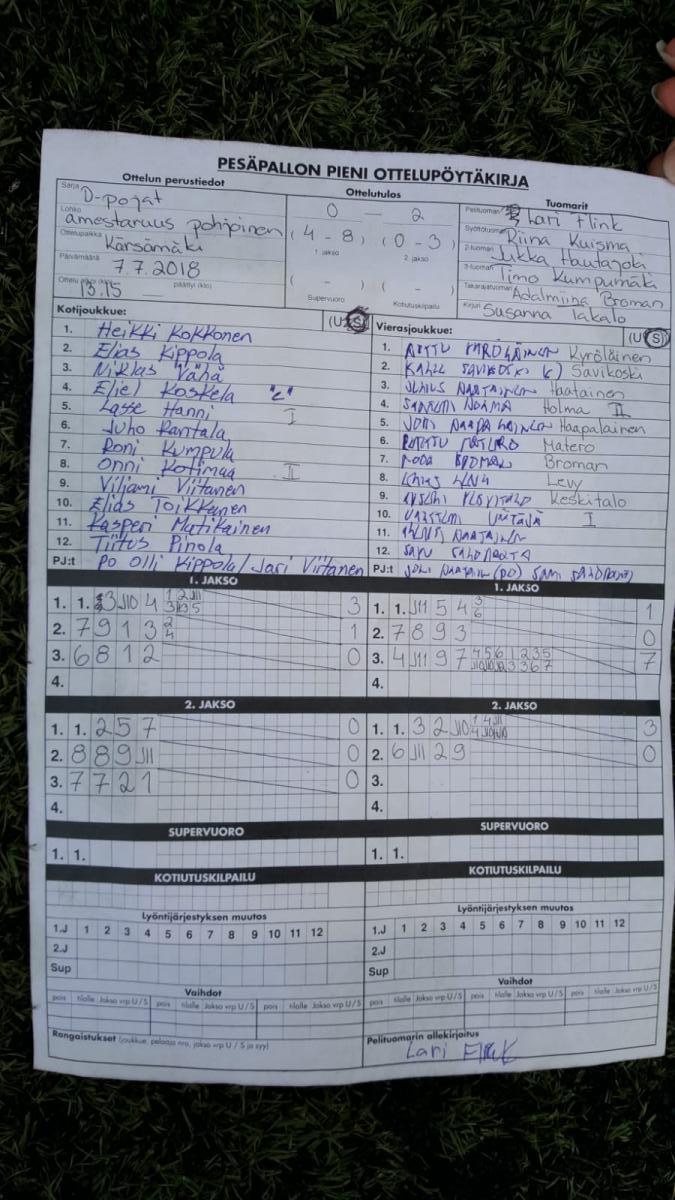 PESÄPALLON PIENI OTTELUPÖYTÄKIRJA
Ottelun perustiedot
Sarja D-pojat
Lohko amestaruus pohjoinen
Ottelupaikka Kärsämäki
Päivämäärä 7.7.2018
13.15 päättyi (klo)
Ottelutulos
0 - 2
(4 - 8) (0 - 3)
1. jakso 2. jakso
( - ) ( - )
Supervuoro Kotiutuskilpailu
Tuomarit
Pelituomari Lari Flink
Syöttötuomari Riina Kuisma
2-tuomari Jukka Hautajoki
3-tuomari Timo Kumpumäki
Takarajatuomari Adalmiina Broman
Kirjuri Susanna Takalo
Kotijoukkue: (U S)
1. Heikki Kokkonen
2. Elias Kippola
3. Niklas Vähä
4. Eljel Koskela "C"
5. Lasse Hanni I
6. Juho Rantala
7. Roni Kumpula
8. Onni Kotimaa II
9. Viljami Viitanen
10. Elias Toikkanen
11. Kasperi Mutikainen
12. Tiitus Pinola
PJ:t PO Olli Kippola / Jari Virtanen
Vierasjoukkue: (U S)
1. Kyröläinen
2. Savikoski
3. Haatainen
4. Holma II
5. Haapalainen
6. Matero
7. Broman
8. Levy
9. Keskitalo
10. I
11.
12.
PJ:t
1. JAKSO
1. 1. 3 J10 4 3
2. 7 9 1 3 2 4 1
3. 6 8 1 2 0
4.
2. JAKSO
1. 1. 2 5 7 0
2. 8 8 9 J11 0
3. 7 7 2 1 0
4.
SUPERVUORO
1. 1.
KOTIUTUSKILPAILU
Lyöntijärjestyksen muutos
1.J 1 2 3 4 5 6 7 8 9 10 11 12
2.J
Sup
Vaihdot
pois tilalle Jakso vrp U/S pois tilalle Jakso vrp U/S pois tilalle Jakso vrp U/S
Rangaistukset (joukkue, pelaaja nro, jakso vrp U / S ja syy)
1. JAKSO
1. 1. J11 5 4 3 6 1
2. 7 8 9 3 0
3. 4 J11 9 7 4 5 6 1 2 3 5 7
4.
2. JAKSO
1. 1. 3 2 J10 3
2. 6 J11 2 9 0
3.
4.
SUPERVUORO
1. 1.
KOTIUTUSKILPAILU
Lyöntijärjestyksen muutos
1.J 1 2 3 4 5 6 7 8 9 10 11 12
2.J
Sup
Vaihdot
pois tilalle Jakso vrp U/S pois tilalle Jakso vrp U/S pois tilalle Jakso vrp U/S
Pelituomarin allekirjoitus
Lari Flink